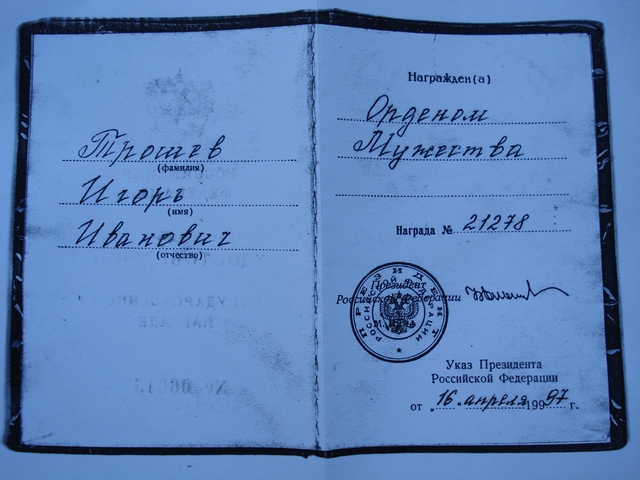 Трошев
(фамилия)
Игорь
(имя)
Иванович
(отчество)
Награжден(а)
Орденом
Мужества
Награда № 21278
Президент
Российской Федерации
М.П.
ПРЕЗИДЕНТ
РОССИЙСКОЙ ФЕДЕРАЦИИ
Указ Президента
Российской Федерации
от „16 апреля 199 97 г.